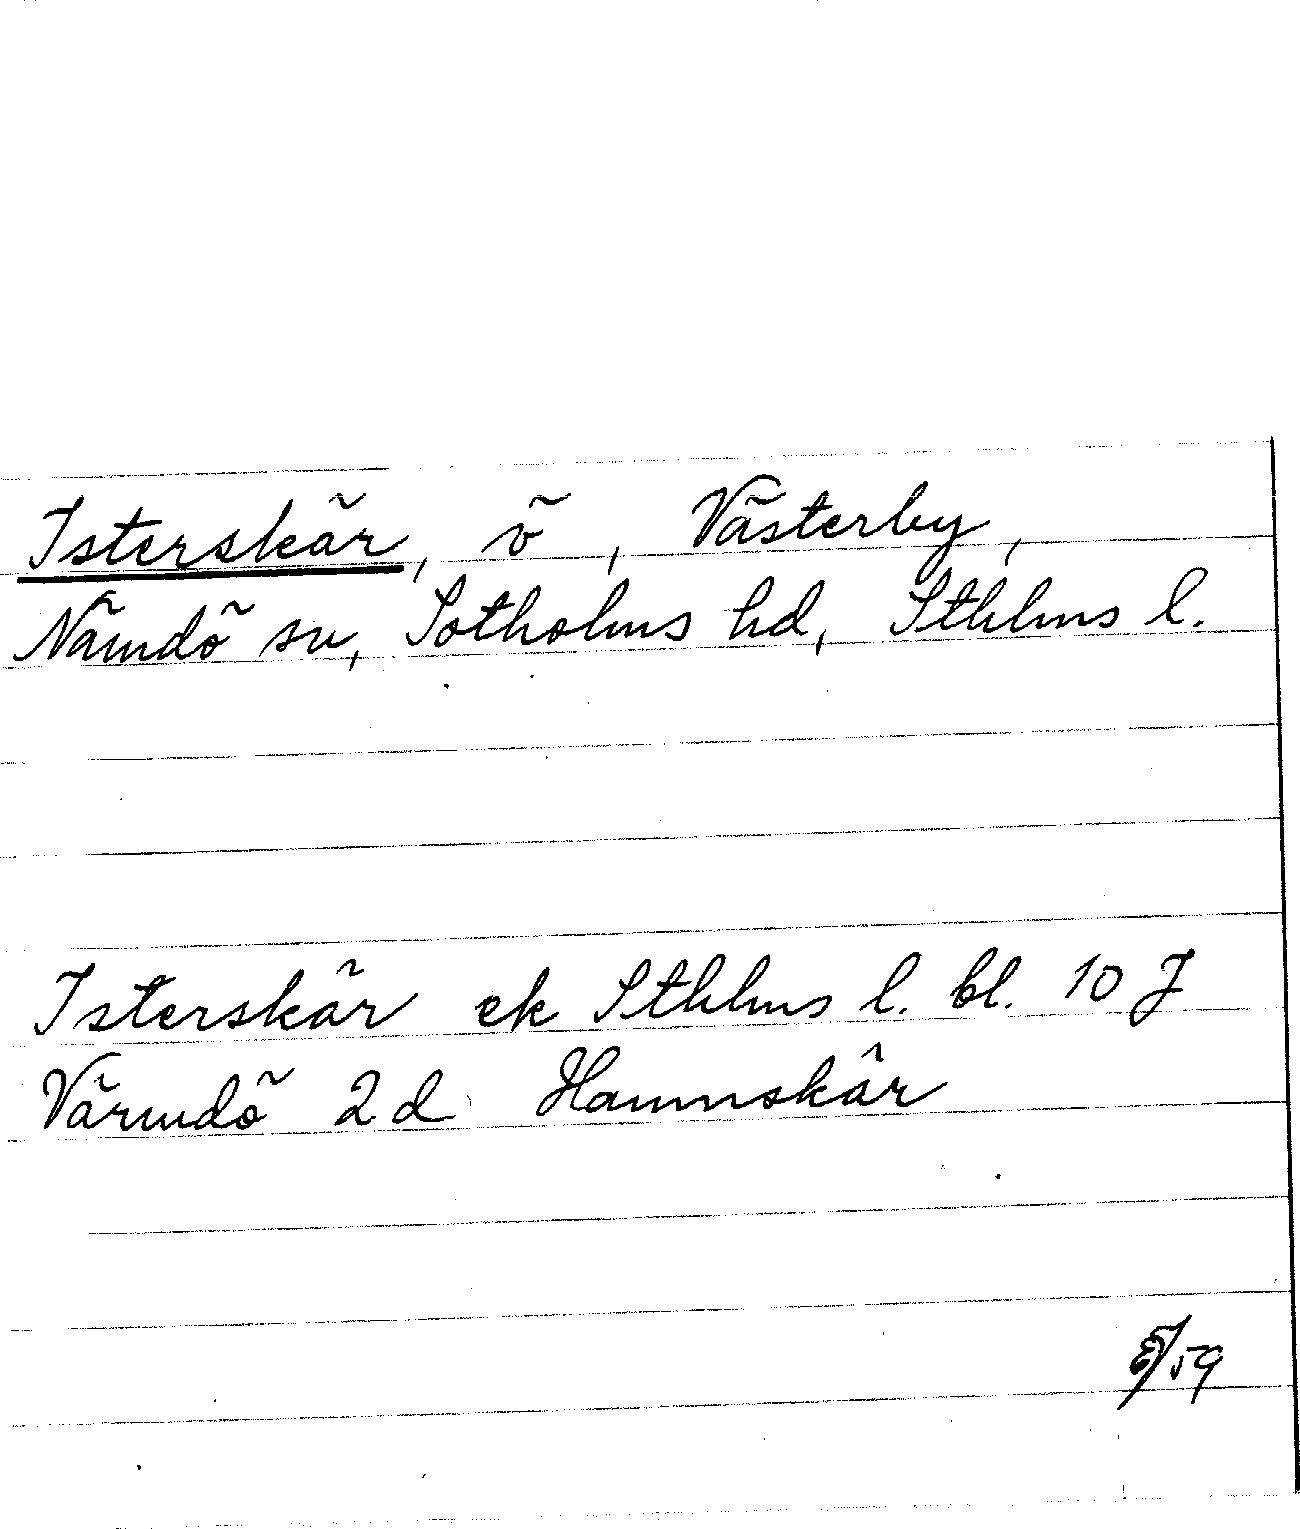 Isterskär, ö, Västerby,
Nämdö sn, Sotholms hd, Sthlms l.
Isterskär ek Sthlms l. bl. 10 J
Värmdö 2d Hamnskär
59